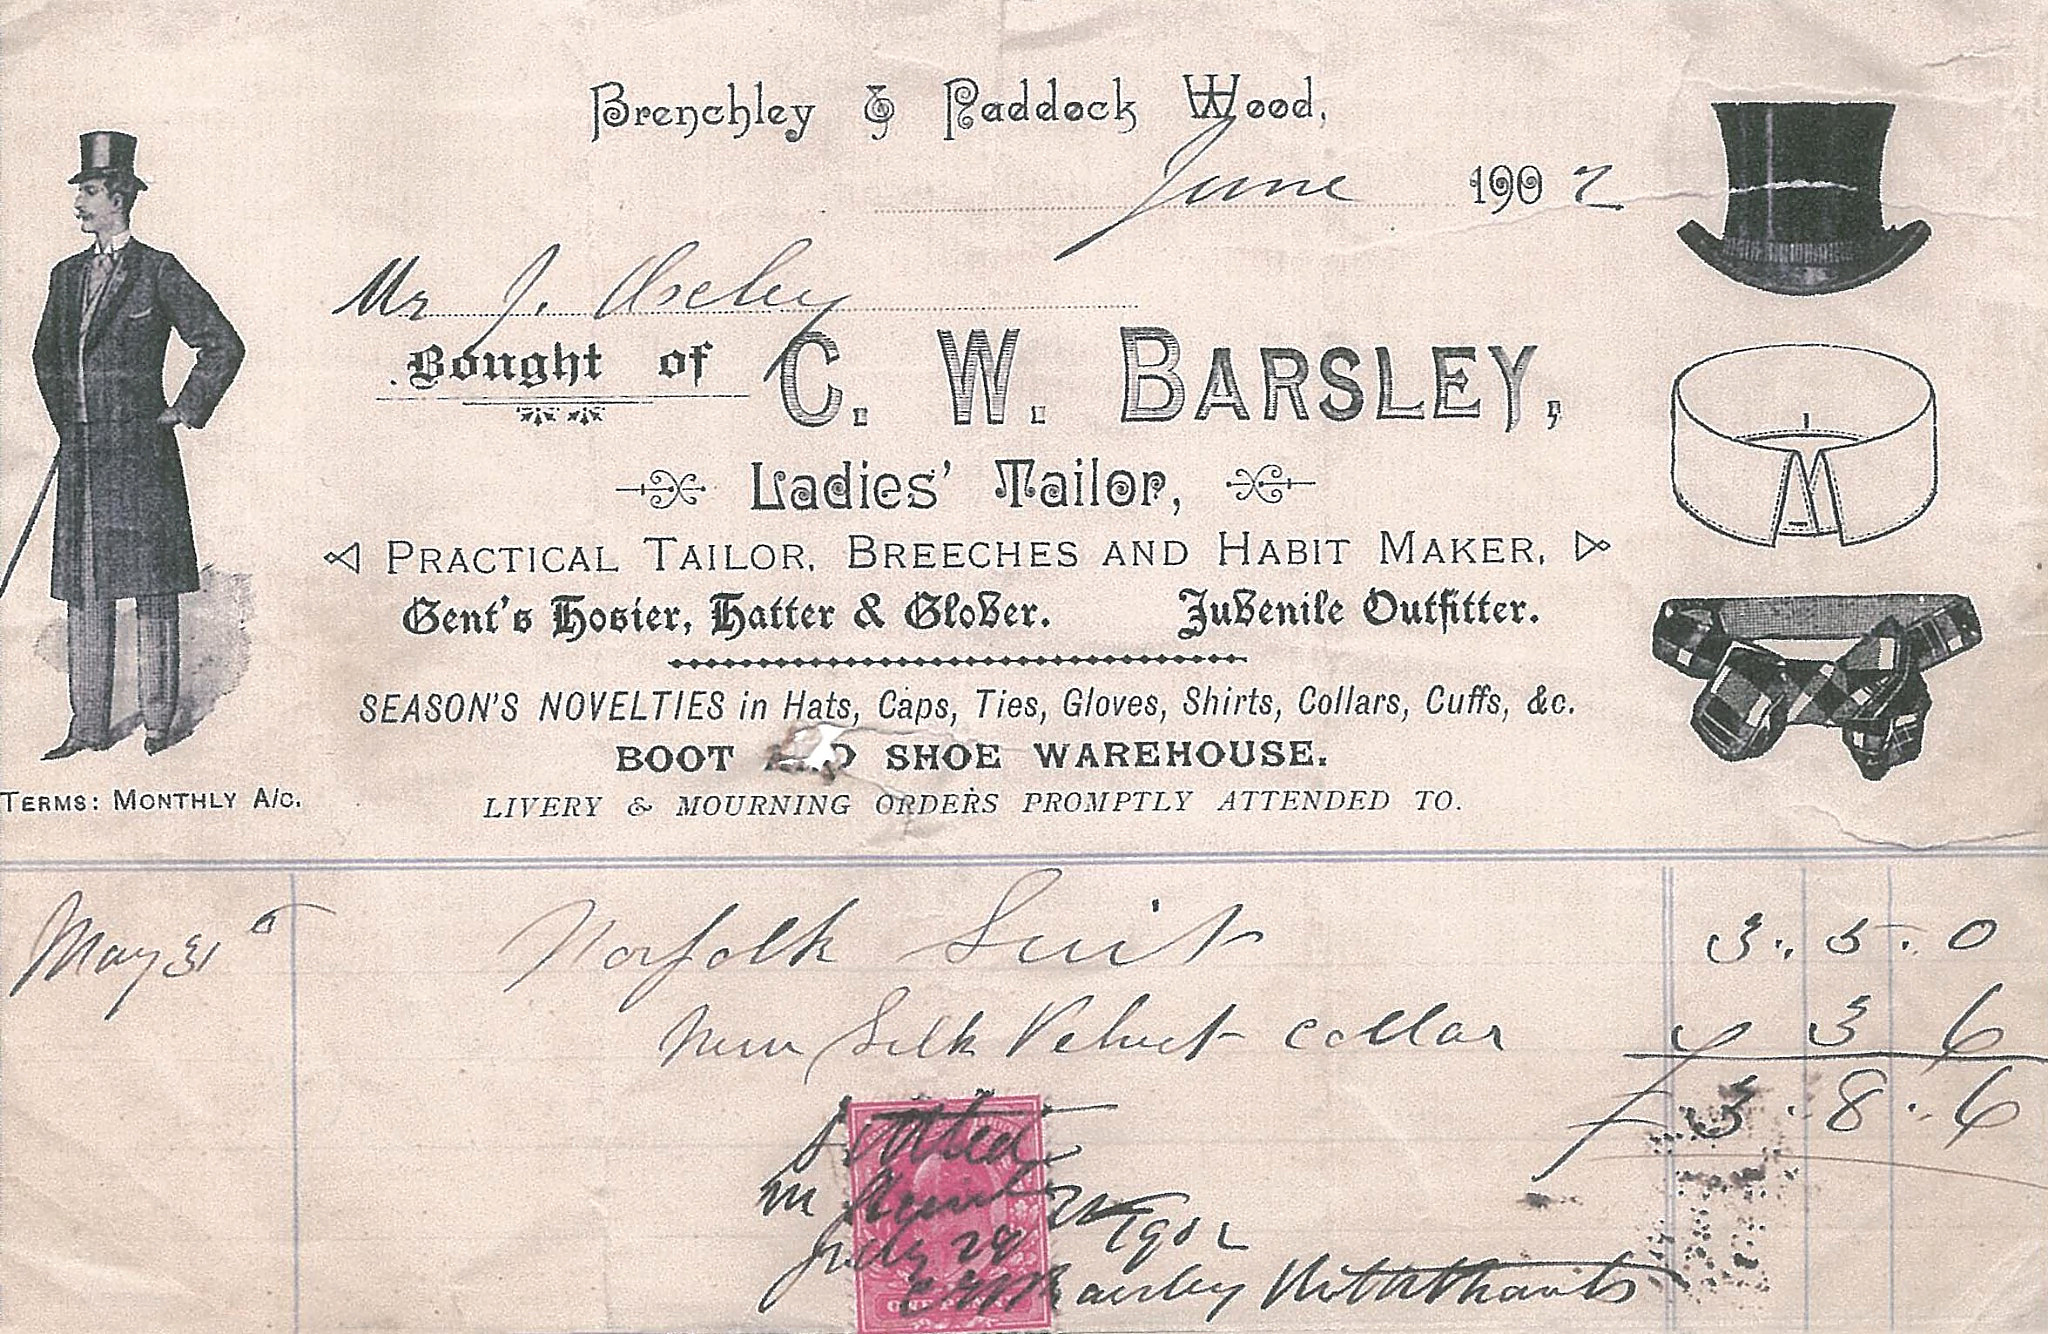 Brenchley & Paddock Wood,
June 1902
Mr J.
Bought of C. W. BARSLEY,
Ladies' Tailor,
PRACTICAL TAILOR, BREECHES AND HABIT MAKER,
Gent's Hosier, Hatter & Glover. Juvenile Outfitter.
SEASON'S NOVELTIES in Hats, Caps, Ties, Gloves, Shirts, Collars, Cuffs, &c.
BOOT AND SHOE WAREHOUSE.
TERMS: MONTHLY A/c.
LIVERY & MOURNING ORDERS PROMPTLY ATTENDED TO.
May 31 Norfolk Suit 3.. 5. 0
New Silk Velvet collar 3 6
£ 3. 8. 6
Settled
July 28 1902
C W Barsley With thanks
ONE PENNY